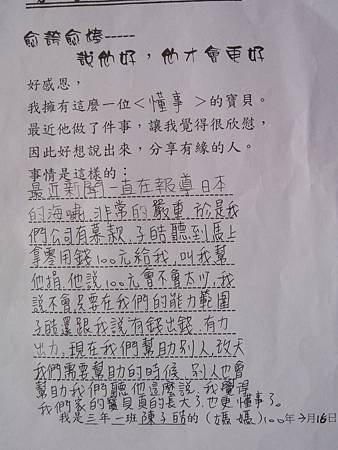 愈誇愈棒-----
說他好，他才會更好
好感恩，
我擁有這麼一位＜懂事＞的寶貝。
最近他做了件事，讓我覺得很欣慰，
因此好想說出來，分享有緣的人。
事情是這樣的：
最近新聞一直在報導日本
的海嘯，非常的嚴重，於是我
們公司有募款，子皓聽到馬上
拿零用錢100元給我，叫我幫
他捐，他說100元會不會太少，我
說不會，只要在我們的能力範圍
子皓還跟我說有錢出錢，有力
出力，現在我們幫助別人，改天
我們需要幫助的時候，別人也會
幫助我們，聽他這麼說，我覺得
我們家的寶貝真的長大了，也更懂事了。
我是三年一班陳子皓的(媽媽)100年3月16日